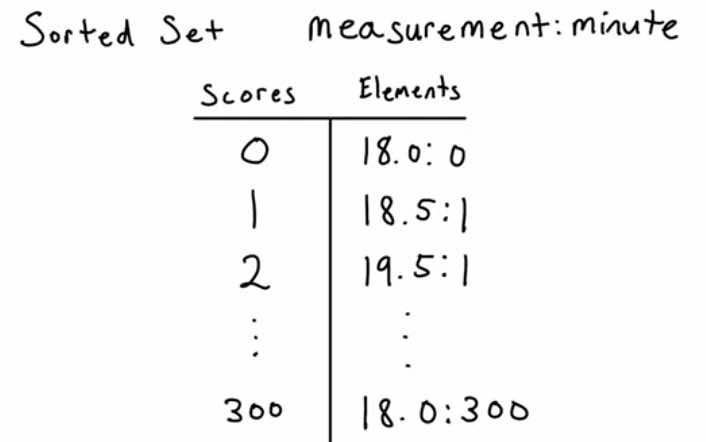 Sorted Set measurement:minute
Scores Elements
0 18.0:0
1 18.5:1
2 19.5:1
⋮ ⋮
300 18.0:300